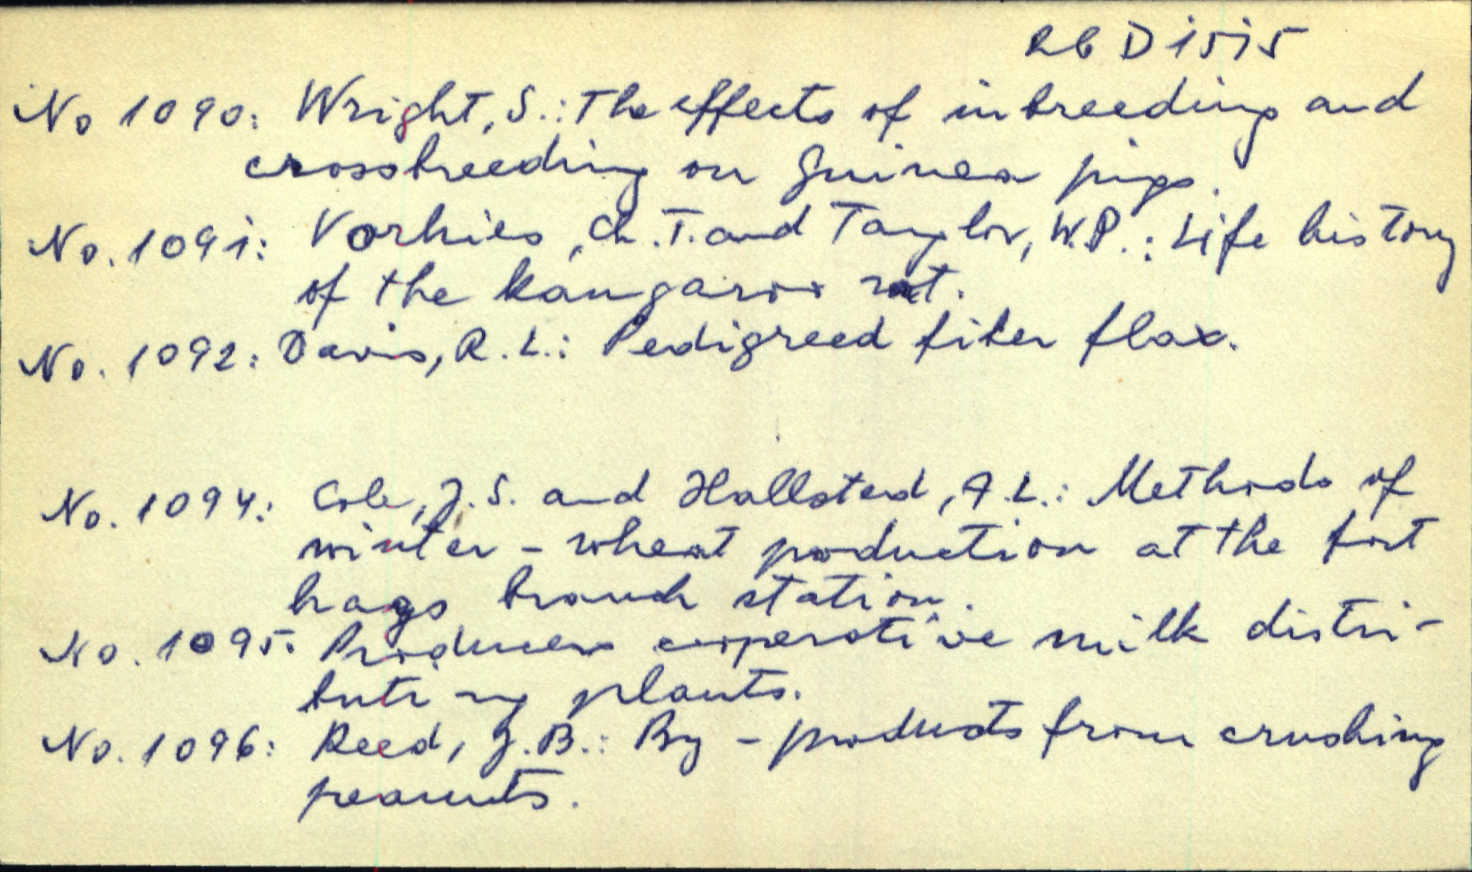 RC D 1515
No 1090: Wright, S.: The effects of inbreeding and
crossbreeding on Guinea pigs.
No. 1091: Vorhies, Ch. T. and Taylor, W.P.: Life history
of the kangaroo rat.
No. 1092: Davis, R. L.: Pedigreed fiber flax.
No. 1094: Cole, J. S. and Hallsted, A. L.: Methods of
winter - wheat production at the fort
hays branch station.
No. 1095: Producers cooperative milk distri-
buting plants.
No. 1096: Reed, J. B.: By - products from crushing
peanuts.